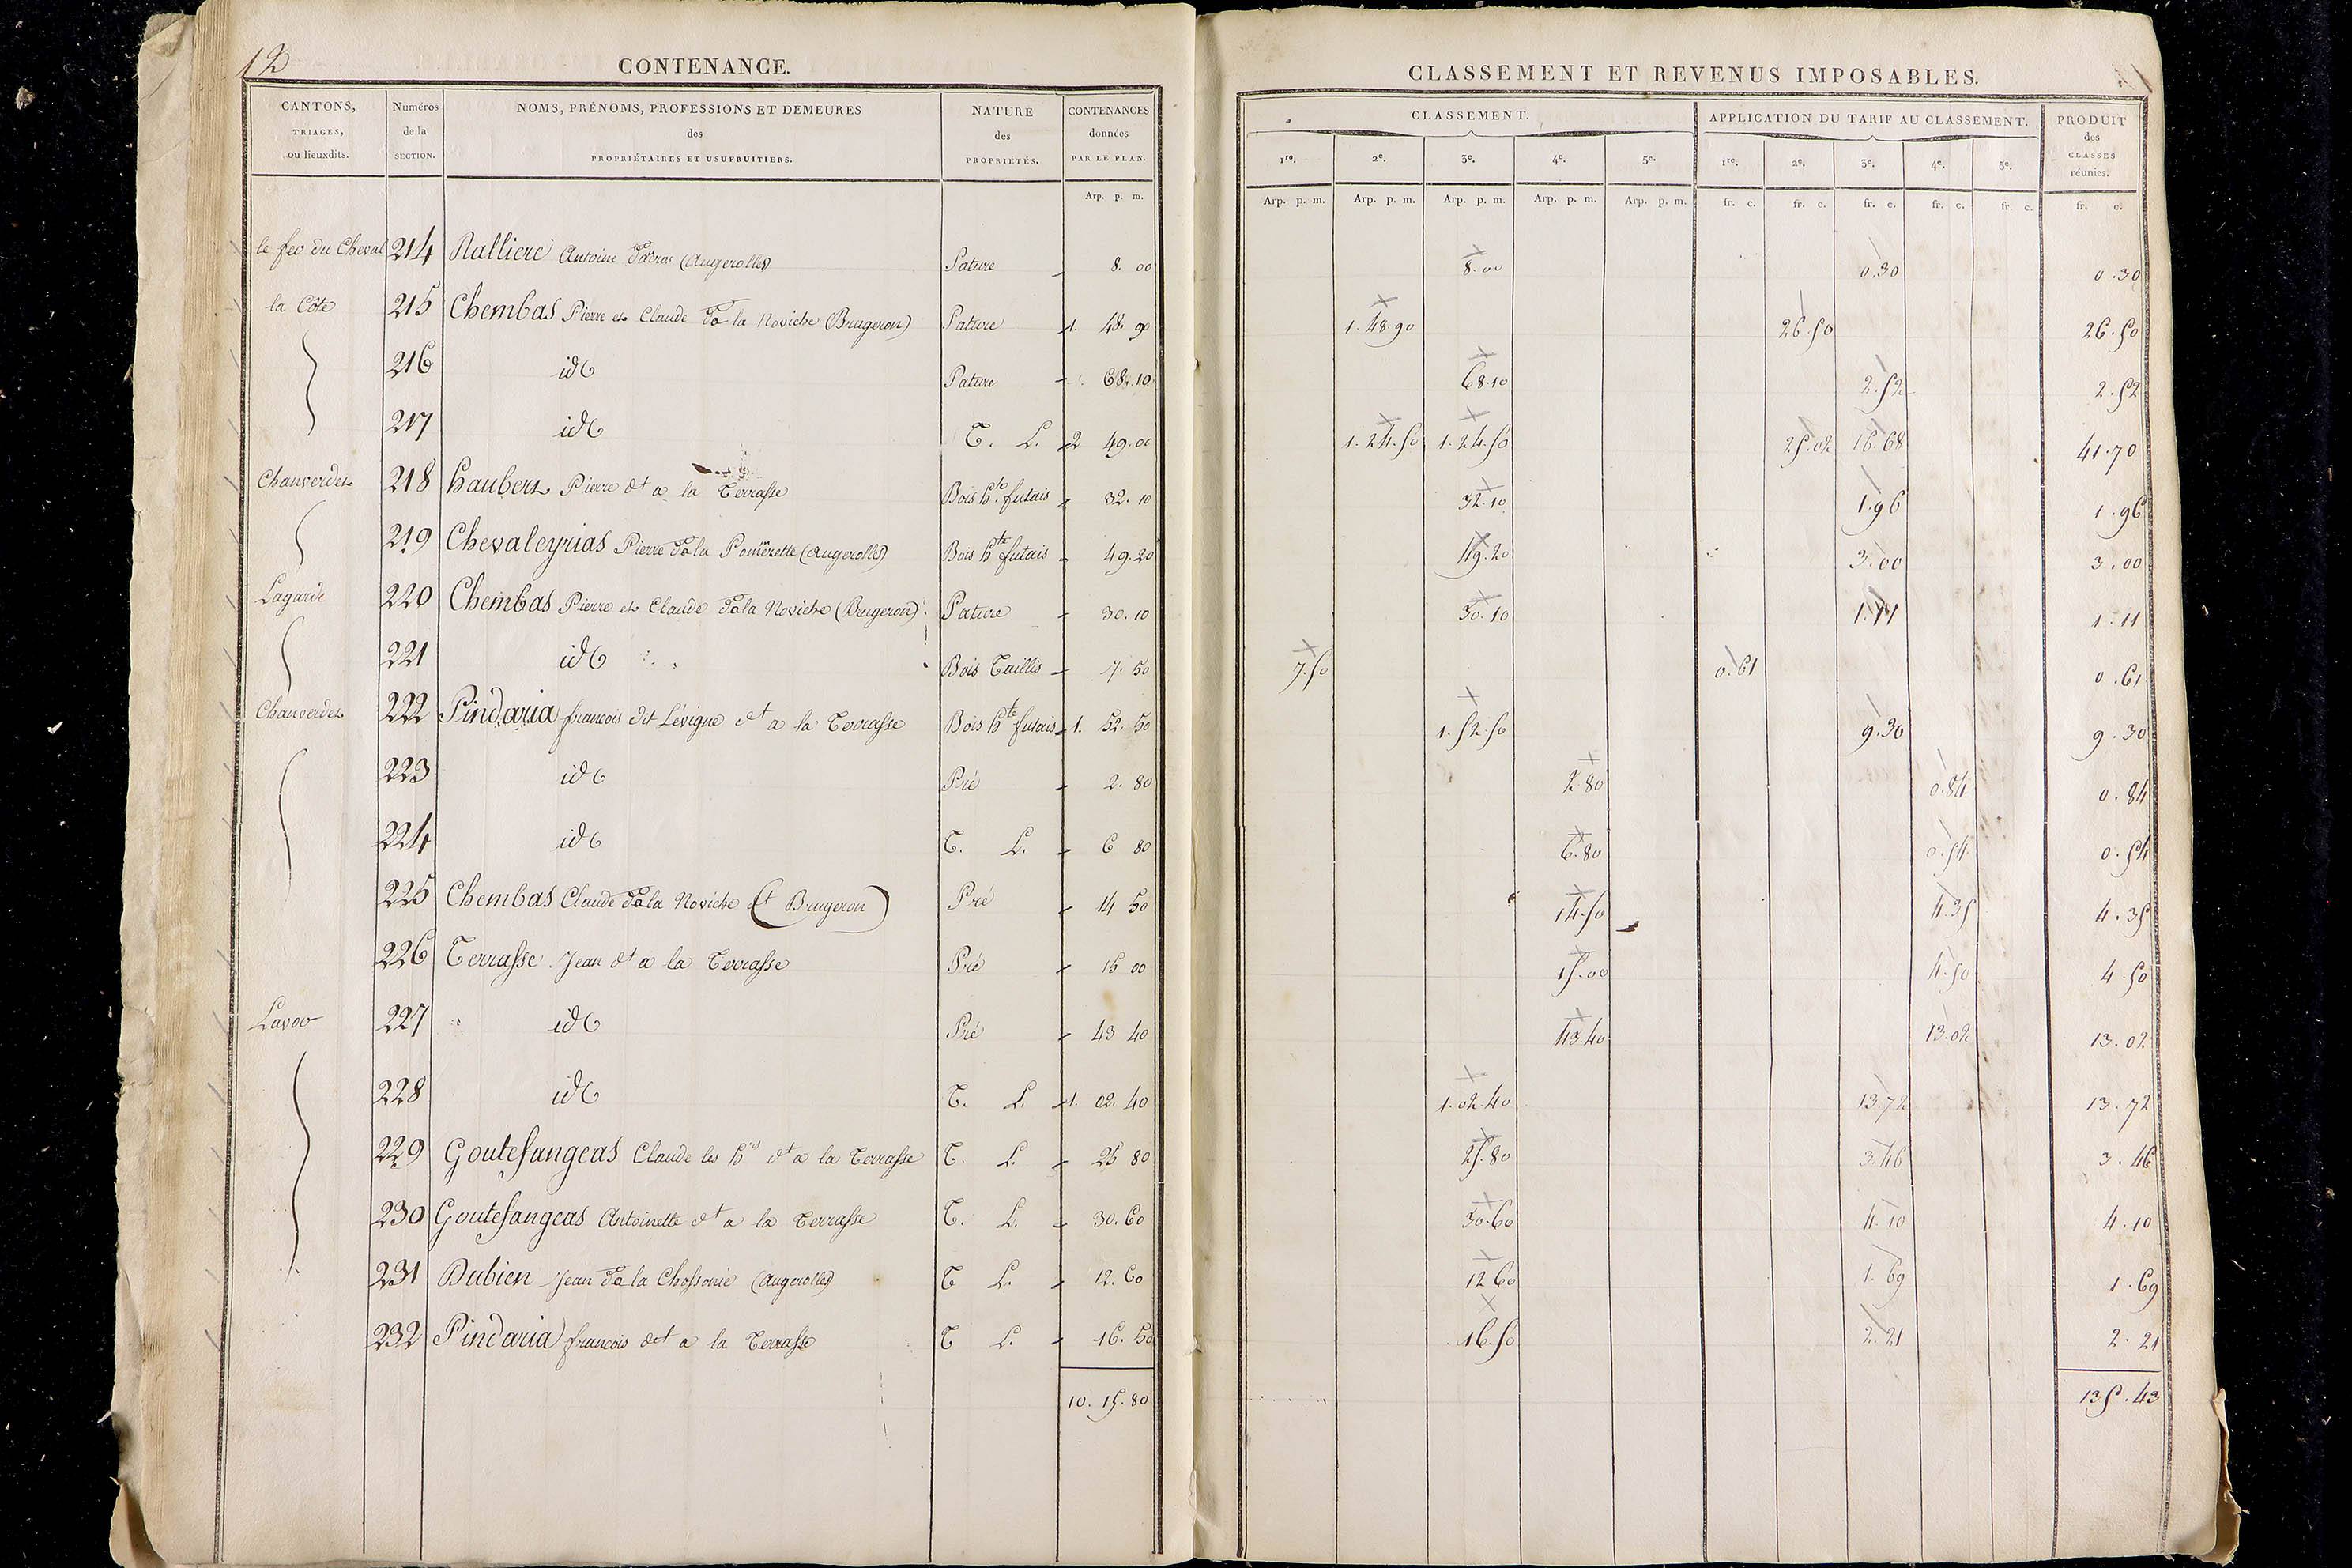 12
CONTENANCE.
CANTONS, TRIAGES, ou lieuxdits. Numéros de la SECTION. NOMS, PRÉNOMS, PROFESSIONS ET DEMEURES des PROPRIÉTAIRES ET USUFRUITIERS. NATURE des PROPRIÉTÉS. CONTENANCES données PAR LE PLAN.
Arp. p. m.
CLASSEMENT ET REVENUS IMPOSABLES.
CLASSEMENT. APPLICATION DU TARIF AU CLASSEMENT. PRODUIT des CLASSES réunies.
1re. 2e. 3e. 4e. 5e. 1re. 2e. 3e. 4e. 5e.
Arp. p. m. Arp. p. m. Arp. p. m. Arp. p. m. Arp. p. m. fr. c. fr. c. fr. c. fr. c. fr. c. fr. c.
le fer du Cheval 214 Ralliere Antoine (Augerolles) Pature 8. 00 8.00 0.30 0.30
la Côte 215 Chembas Pierre et Claude à la Noviche (Brugeron) Pature 1. 48. 90 1.48.90 26.50 26.50
216 id Pature 68.10 68.10 2.52 2.52
217 id T. L. 2 49.00 1.24.50 1.24.50 25.02 16.68 41.70
Chanverdet 218 haubert Pierre dt a la Terrasse Bois hte futais 32. 10 32.10 1.96 1.96
219 Chevaleyrias Pierre à la Pomerette (Augerolles) Bois hte futais 49.20 49.20 3.00 3.00
Lagarde 220 Chembas Pierre et Claude à la Noviche (Brugeron) Pature 30.10 30.10 1.11 1.11
221 id Bois Taillis 7. 50 7.50 0.61 0.61
Chanverdet 222 Pindaria francois dit Lévigne dt a la Terrasse Bois hte futais 1. 52. 50 1.52.50 9.30 9.30
223 id Pré 2. 80 2.80 0.84 0.84
224 id T. L. 6 80 6.80 0.54 0.54
225 Chembas Claude à la Noviche (dt Brugeron) Pré 14 50 14.50 4.35 4.35
226 Terrasse Jean dt a la Terrasse Pré 15 00 15.00 4.50 4.50
Lavov 227 id Pré 43 40 43.40 13.02 13.02
228 id T. L. 1. 02. 40 1.02.40 13.72 13.72
229 Goutefangeas Claude les hrs dt a la Terrasse T. L. 25 80 25.80 3.46 3.46
230 Goutefangeas Antoinette dt a la Terrasse T. L. 30.60 30.60 4.10 4.10
231 Dubien Jean à la Chossonie (Augerolles) T L. 12.60 12 60 1.69 1.69
232 Pindaria francois dt a la Terrasse T L. 16. 50 16.50 2.21 2.21
10. 15.80 135.43